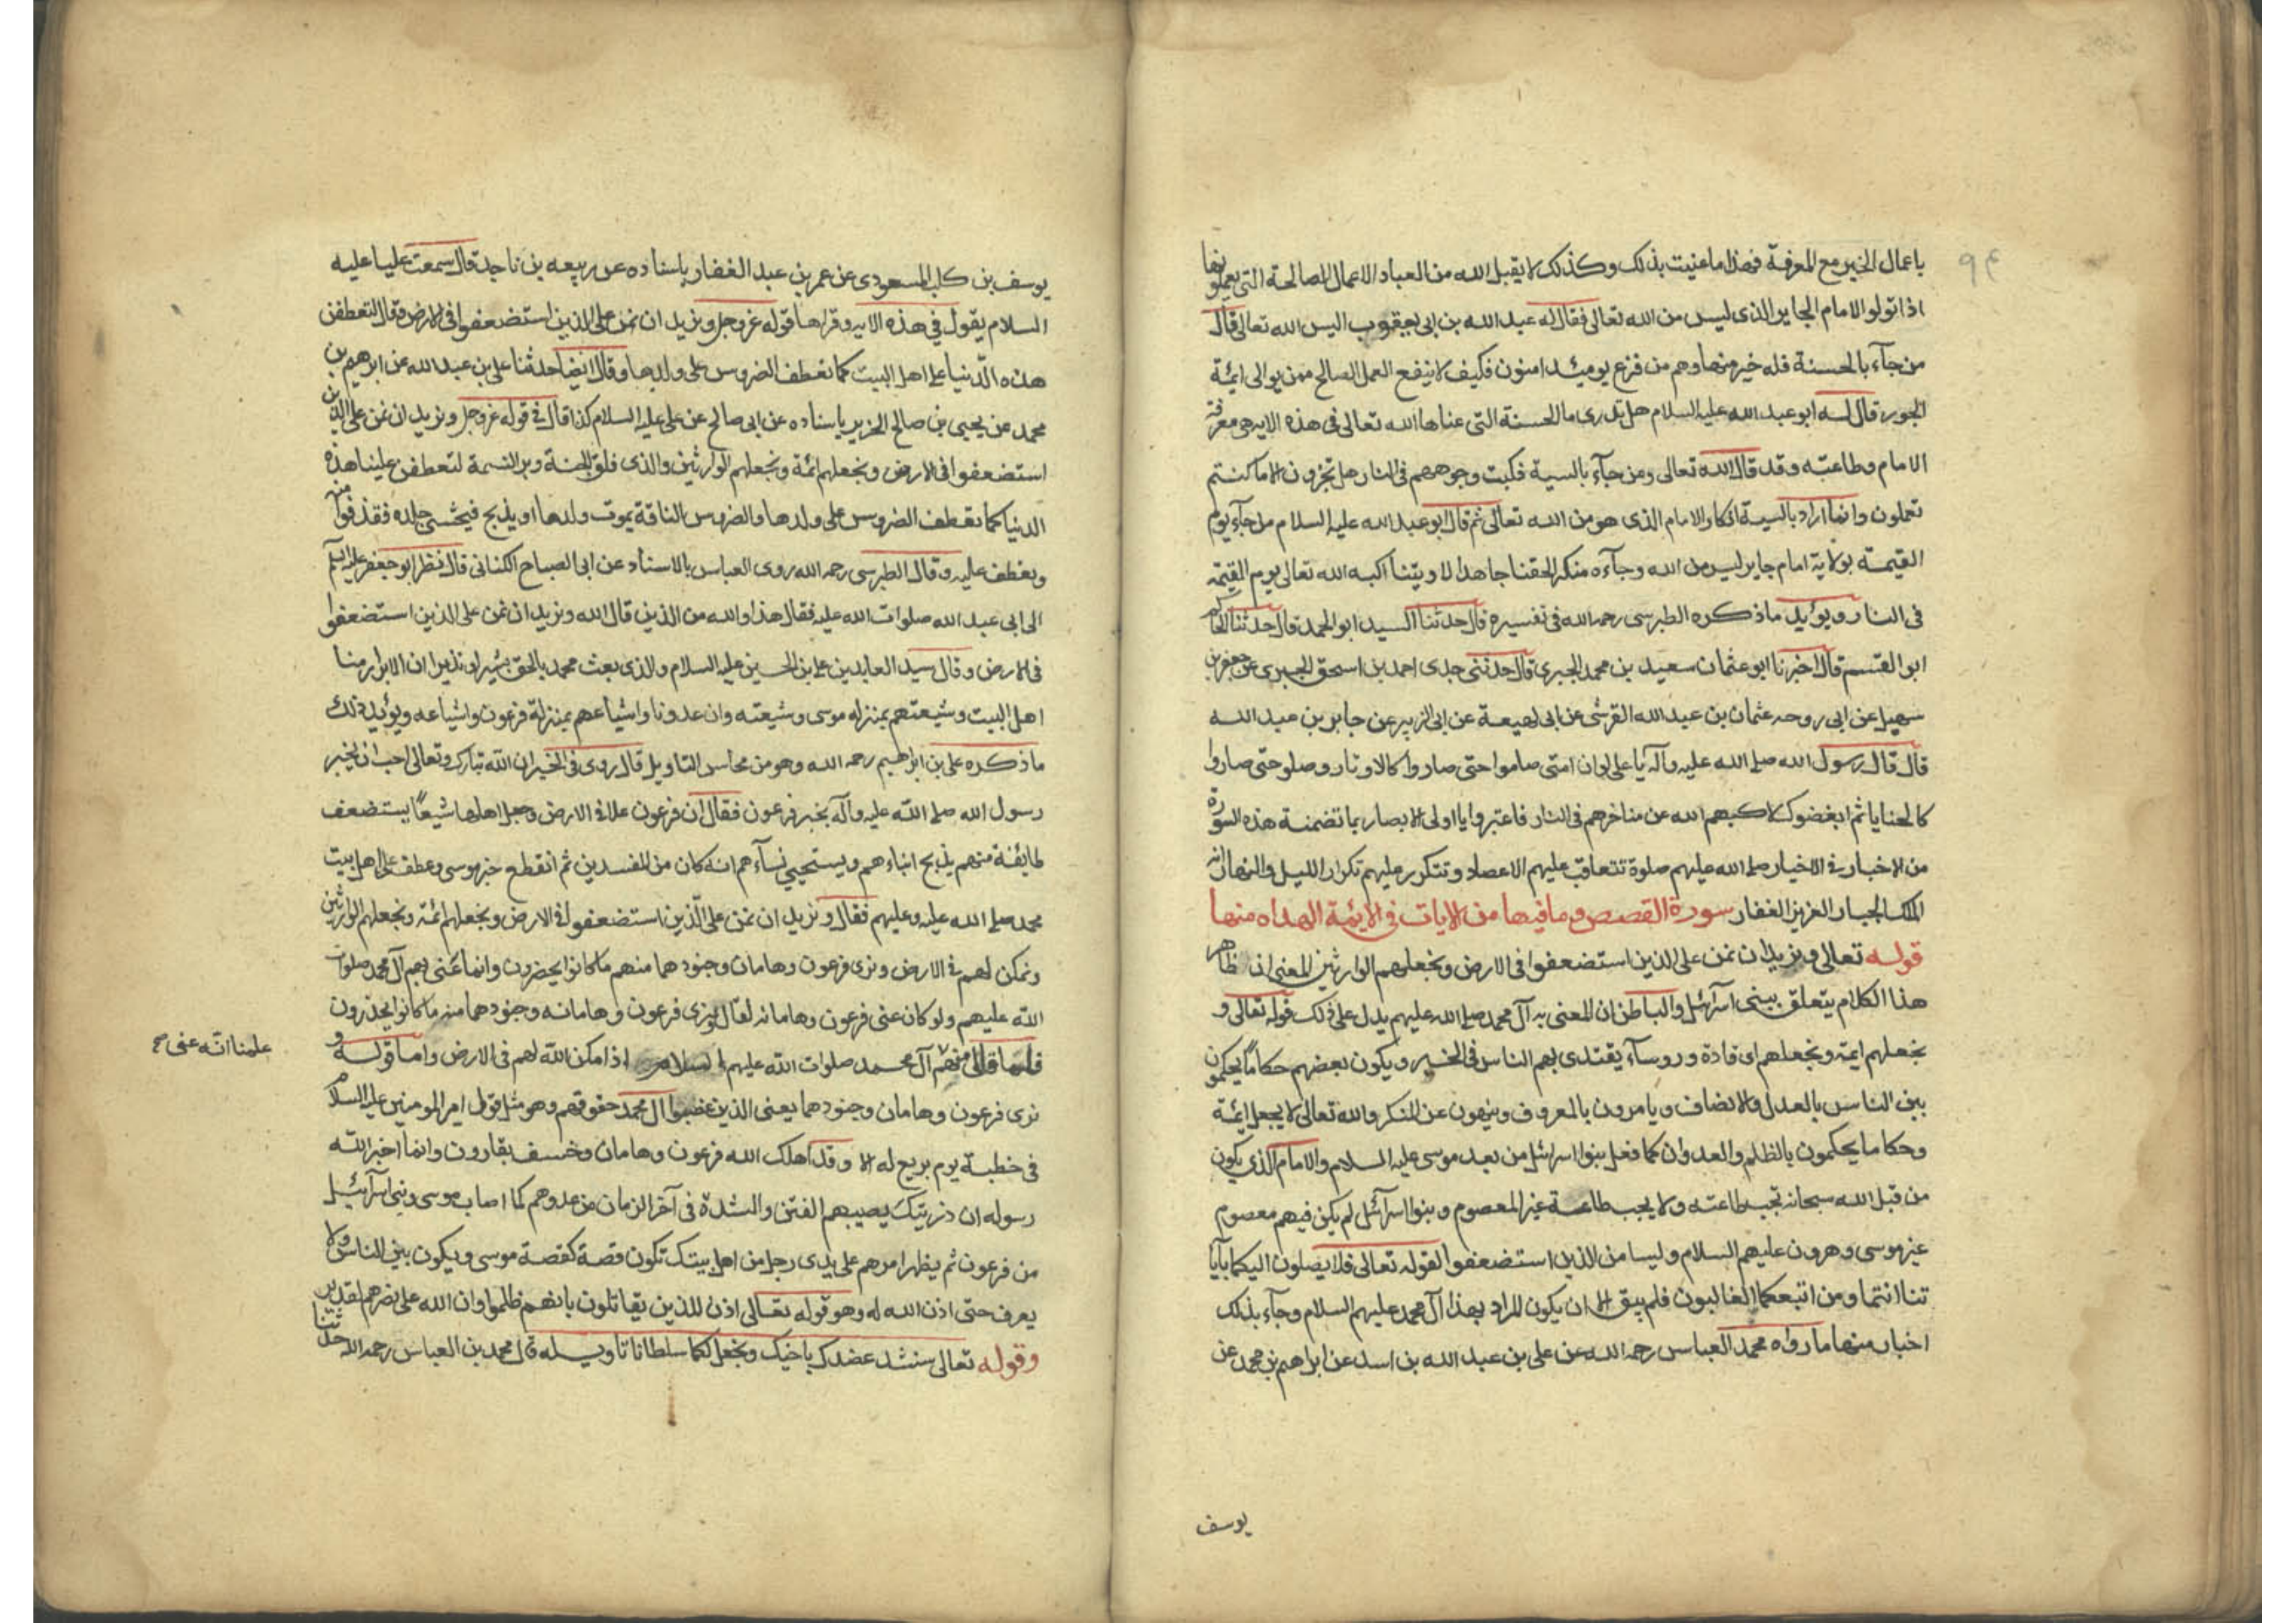 باعمال الخير مع المعرفة فهذا ما عنيت بذلك وكذلك لا يقبل الله من العباد الاعمال الصالحة التي يعملونها
اذا تولو الامام الجاير الذى ليس من الله تعالى فقال له عبد الله بن ابى يعقوب اليس الله تعالى قال
من جآء بالحسنة فله خير منها وهم من فزع يومئذ امنون فكيف لا ينفع العمل الصالح ممن يوالى ائمة
الجور قال له ابو عبد الله عليه السلام هل تدرى ما الحسنة التى عناها الله تعالى فى هذه الايه هى معرفة
الامام وطاعته وقد قال الله تعالى ومن جآء بالسية فكبت وجوههم فى النار هل تجزون الا ما كنتم
تعملون وانما اراد بالسية انكار الامام الذى هو من الله تعالى ثم قال ابو عبد الله عليه السلام من جآء يوم
القيمة بولاية امام جاير ليس من الله وجآءه منكرا لحقنا جاهدا لا ويتنا اكبه الله تعالى يوم القيمة
فى النار ويؤيد ما ذكره الطبرسى رحمه الله فى تفسيره قال حدثنا السيد ابو الحمد قال حدثنا الحاكم
ابو القسم قال اخبرنا ابو عثمان سعيد بن محمد الحبرى قال حدثنى جدى احمد بن اسحق الحبيرى عن جعفر بن
سهيل عن ابى روحه عثمان بن عبد الله القرشى عن ابى لهيعة عن ابى الزبير عن جابر بن عبد الله
قال قال رسول الله صلى الله عليه وآله يا على لو ان امتى صاموا حتى صاروا كالاوتار وصلو حتى صاروا
كالحنايا ثم ابغضوك لاكبهم الله عن مناخرهم فى النار فاعتبروا يا اولى الابصار بما تضمنة هذه السورة
من الاخبار فى الاخيار صلى الله عليهم صلوة تتعاقب عليهم الاعصاد وتتكرر عليهم تكرار الليل والنهار انه
الملك الجبار العزيز الغفار سورة القصص وما فيها من الايات فى الايمة الهداه منها
قوله تعالى ونريد ان نمن على الذين استضعفوا فى الارض ونجعلهم الوارثين المعنى ان ظاهر
هذا الكلام يتعلق ببنى اسرائيل والباطن ان المعنى به آل محمد صلى الله عليهم يدل على ذلك قوله تعالى و
نجعلهم ايمة ونجعلهم اى قادة وروسآء يقتدى بهم الناس فى الخير ويكون بعضهم حكاما يحكمون
بين الناس بالعدل والانصاف ويامرون بالمعروف وينهون عن المنكر والله تعالى لا يجعل ايمة
وحكاما يحكمون بالظلم والعدوان كما فعل بنوا اسرائيل من بعد موسى عليه السلام والامام الذى يكون
من قبل الله سبحانه تجب طاعته ولا يجب طاعة غير المعصوم وبنوا اسرآئيل لم يكن فيهم معصوم
غير موسى وهرون عليهم السلام وليسا من الذين استضعفوا لقوله تعالى فلا يصلون اليكما بآيا
تنا انتما ومن اتبعكما الغالبون فلم يبق الا ان يكون المراد بهذا آل محمد عليهم السلام وجآء بذلك
اخبار منها ما رواه محمد العباس رحمه الله عن على بن عبد الله بن اسد عن ابراهيم بن محمد عن
يوسف
يوسف بن كليب المسعودى عن عمر بن عبد الغفار باسناده عن ربيعه بن ناجد قال سمعت عليا عليه
السلام يقول فى هذه الايه وقراها قوله عز وجل ونريد ان نمن على الذين استضعفوا فى الارض وقال لتعطفن
هذه الدنيا على اهل البيت كما تعطف الضروس على ولدها وقال ايضا حدثنا على بن عبد الله عن ابرهيم بن
محمد عن يحيى بن صالح الخزيز باسناده عن ابى صالح عن على عليه السلام كذا قال فى قوله عز وجل ونريد ان نمن على الذين
استضعفوا فى الارض ونجعلهم ائمة ونجعلهم الوارثين والذى فلق الحبة وبرا النسمة لتعطفن علينا هذه
الدنيا كما تعطف الضروس على ولدها والضروس الناقة يموت ولدها او يذبح فيحشى جلده فقذفوا منه
وتعطف عليه وقال الطبرسى رحمه الله روى العباس بالاسناد عن ابى الصباح الكنانى قال نظر ابو جعفر عليه السلم
الى ابى عبد الله صلوات الله عليه فقال هذا والله من الذين قال الله ونريد ان نمن على الذين استضعفوا
فى الارض وقال سيد العابدين على بن الحسين عليه السلام والذى بعث محمد بالحق بشيرا ونذيرا ان الابرار منا
اهل البيت وشيعتهم بمنزله موسى وشيعته وان عدونا واشياعهم بمنزلة فرعون واشياعه ويؤيد ذلك
ما ذكره على بن ابراهيم رحمه الله وهو من محاسن التاويل قال روى فى الخبر ان الله تبارك وتعالى احب ان يخبر
رسول الله صلى الله عليه وآله بخبر فرعون فقال ان فرعون علا فى الارض وجعل اهلها شيعًا يستضعف
طايفة منهم يذبح ابناءهم ويستحيي نسآءهم انه كان من المفسدين ثم انقطع خبر موسى وعطف على اهل بيت
محمد صلى الله عليه وعليهم فقال ونريد ان نمن على الذين استضعفوا فى الارض ونجعلهم ائمة ونجعلهم الوارثين
ونمكن لهم فى الارض ونرى فرعون وهامان وجنودهما منهم ما كانوا يحضرون وانما عنى بهم آل محمد صلوات
الله عليهم ولو كان عنى فرعون وهامانه لقال ونرى فرعون وهامانه وجنودهما منه ما كانوا يحذرون
فلما قال منهم آل محمد صلوات الله عليهم السلام اذا مكن الله لهم فى الارض واما قوله و
علمنا انه عنى صح
نرى فرعون وهامان وجنودهما يعنى الذين غصبوا آل محمد حقوقهم وهو مثل قول امير المومنين عليه السلام
فى خطبة يوم بويع له الا وقد اهلك الله فرعون وهامان وخسف بقارون وانما اخبر الله
رسوله ان ذريتك يصيبهم الفتن والشدة فى آخر الزمان من عدوهم كما اصاب موسى وبنى اسرآئيل
من فرعون ثم يظهر امرهم على يدى رجل من اهل بيتك تكون قصة كقصة موسى ويكون بين الناس ولا
يعرف حتى اذن الله له وهو قوله تعالى اذن للذين يقاتلون بانهم ظلموا وان الله على نصرهم لقدير
وقوله تعالى سنشد عضدك باخيك ونجعل لكما سلطانا تاويله قال محمد بن العباس رحمه الله حدثنا